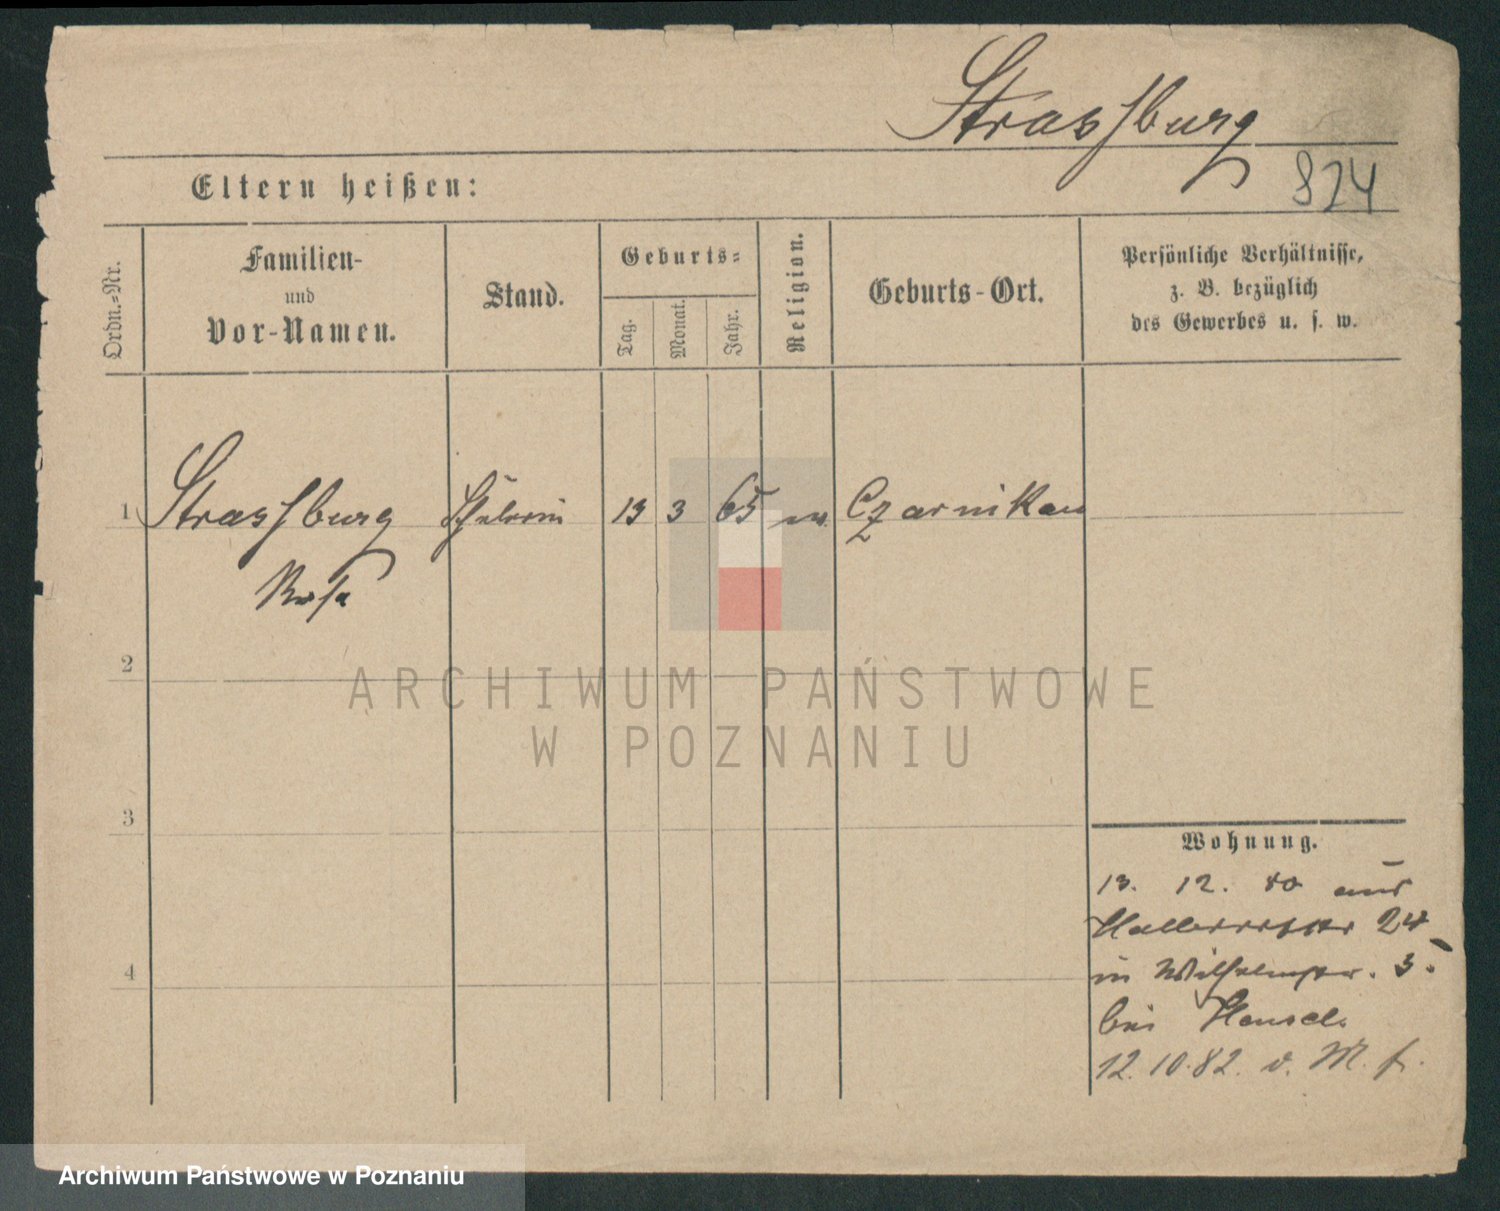 Strassburg
824
Eltern heißen:
Ordn.-Nr.
Familien-
und
Vor-Namen.
Stand.
Geburts-
Tag.
Monat.
Jahr.
Religion.
Geburts-Ort.
Persönliche Verhältnisse,
z. B. bezüglich
des Gewerbes u. s. w.
1 Strassburg Schülerin 13 3 65 m. Czarnikau
Rosa
2
ARCHIWUM PAŃSTWOWE
W POZNANIU
3
Wohnung.
13. 12. 80 aus
24
4
in Wilhelmstr. 3.
bei Hensel.
12.10.82. v. M. f.
Archiwum Państwowe w Poznaniu